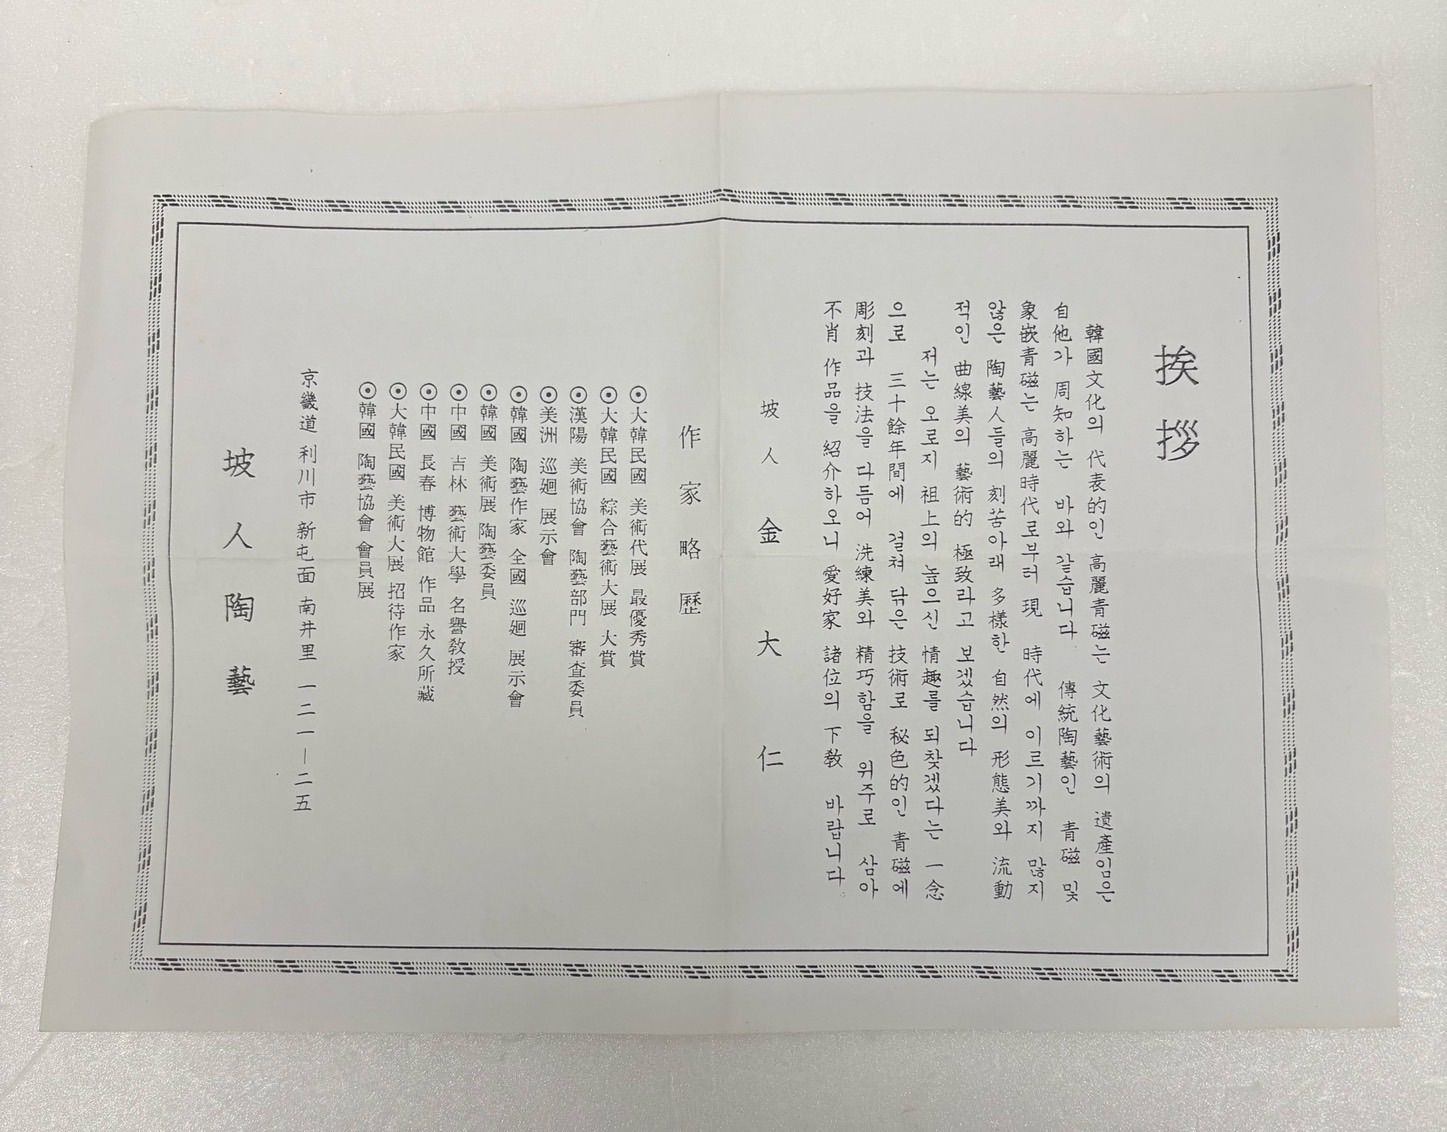 挨拶
韓國文化의 代表的인 高麗青磁는 文化藝術의 遺産임은
自他가 周知하는 바와 같습니다. 傳統陶藝인 青磁 및
象嵌青磁는 高麗時代로부터 現 時代에 이르기까지 많지
않은 陶藝人들의 刻苦아래 多樣한 自然의 形態美와 流動
적인 曲線美의 藝術的 極致라고 보겠습니다
저는 오로지 祖上의 높으신 情趣를 되찾겠다는 一念
으로 三十餘年間에 걸쳐 닦은 技術로 秘色的인 青磁에
彫刻과 技法을 다듬어 洗練美와 精巧함을 위주로 삼아
不肖 作品을 紹介하오니 愛好家 諸位의 下敎 바랍니다.
坡人 金大仁
作家略歷
⦿大韓民國 美術代展 最優秀賞
⦿大韓民國 綜合藝術大展 大賞
⦿漢陽 美術協會 陶藝部門 審査委員
⦿美洲 巡廻 展示會
⦿韓國 陶藝作家 全國 巡廻 展示會
⦿韓國 美術展 陶藝委員
⦿中國 吉林 藝術大學 名譽敎授
⦿中國 長春 博物館 作品 永久所藏
⦿大韓民國 美術大展 招待作家
⦿韓國 陶藝協會 會員展
京畿道 利川市 新屯面 南井里 一二一ー二五
坡人陶藝